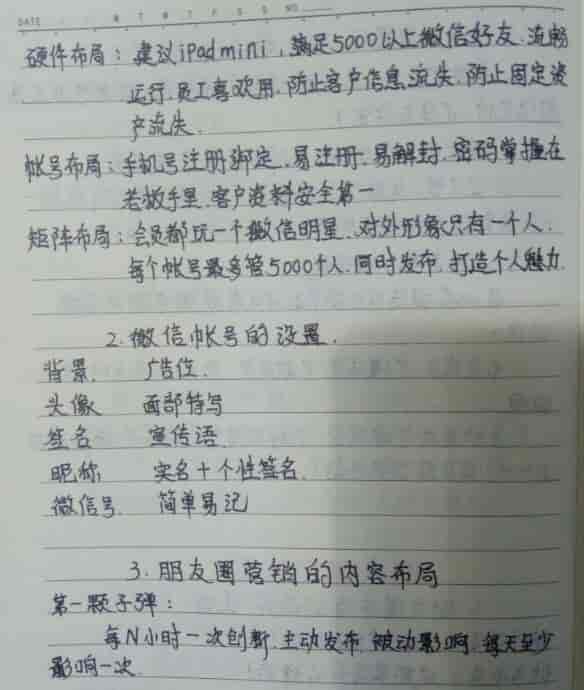 DATE M T W T F S S NO.
硬件布局：建议iPad mini，满足5000以上微信好友.流畅
运行.员工喜欢用.防止客户信息流失.防止固定资
产流失.
帐号布局：手机号注册绑定.易注册.易解封.密码掌握在
老板手里.客户资料安全第一
矩阵布局：会员都玩一个微信明星.对外形象只有一个人.
每个帐号最多管5000个人.同时发布.打造个人魅力.
2.微信帐号的设置.
背景. 广告位.
头像 面部特写
签名 宣传语
昵称 实名+个性签名.
微信号. 简单易记
3.朋友圈营销的内容布局
第一颗子弹：
每N小时一次创新.主动发布.被动影响.每天至少
影响一次.